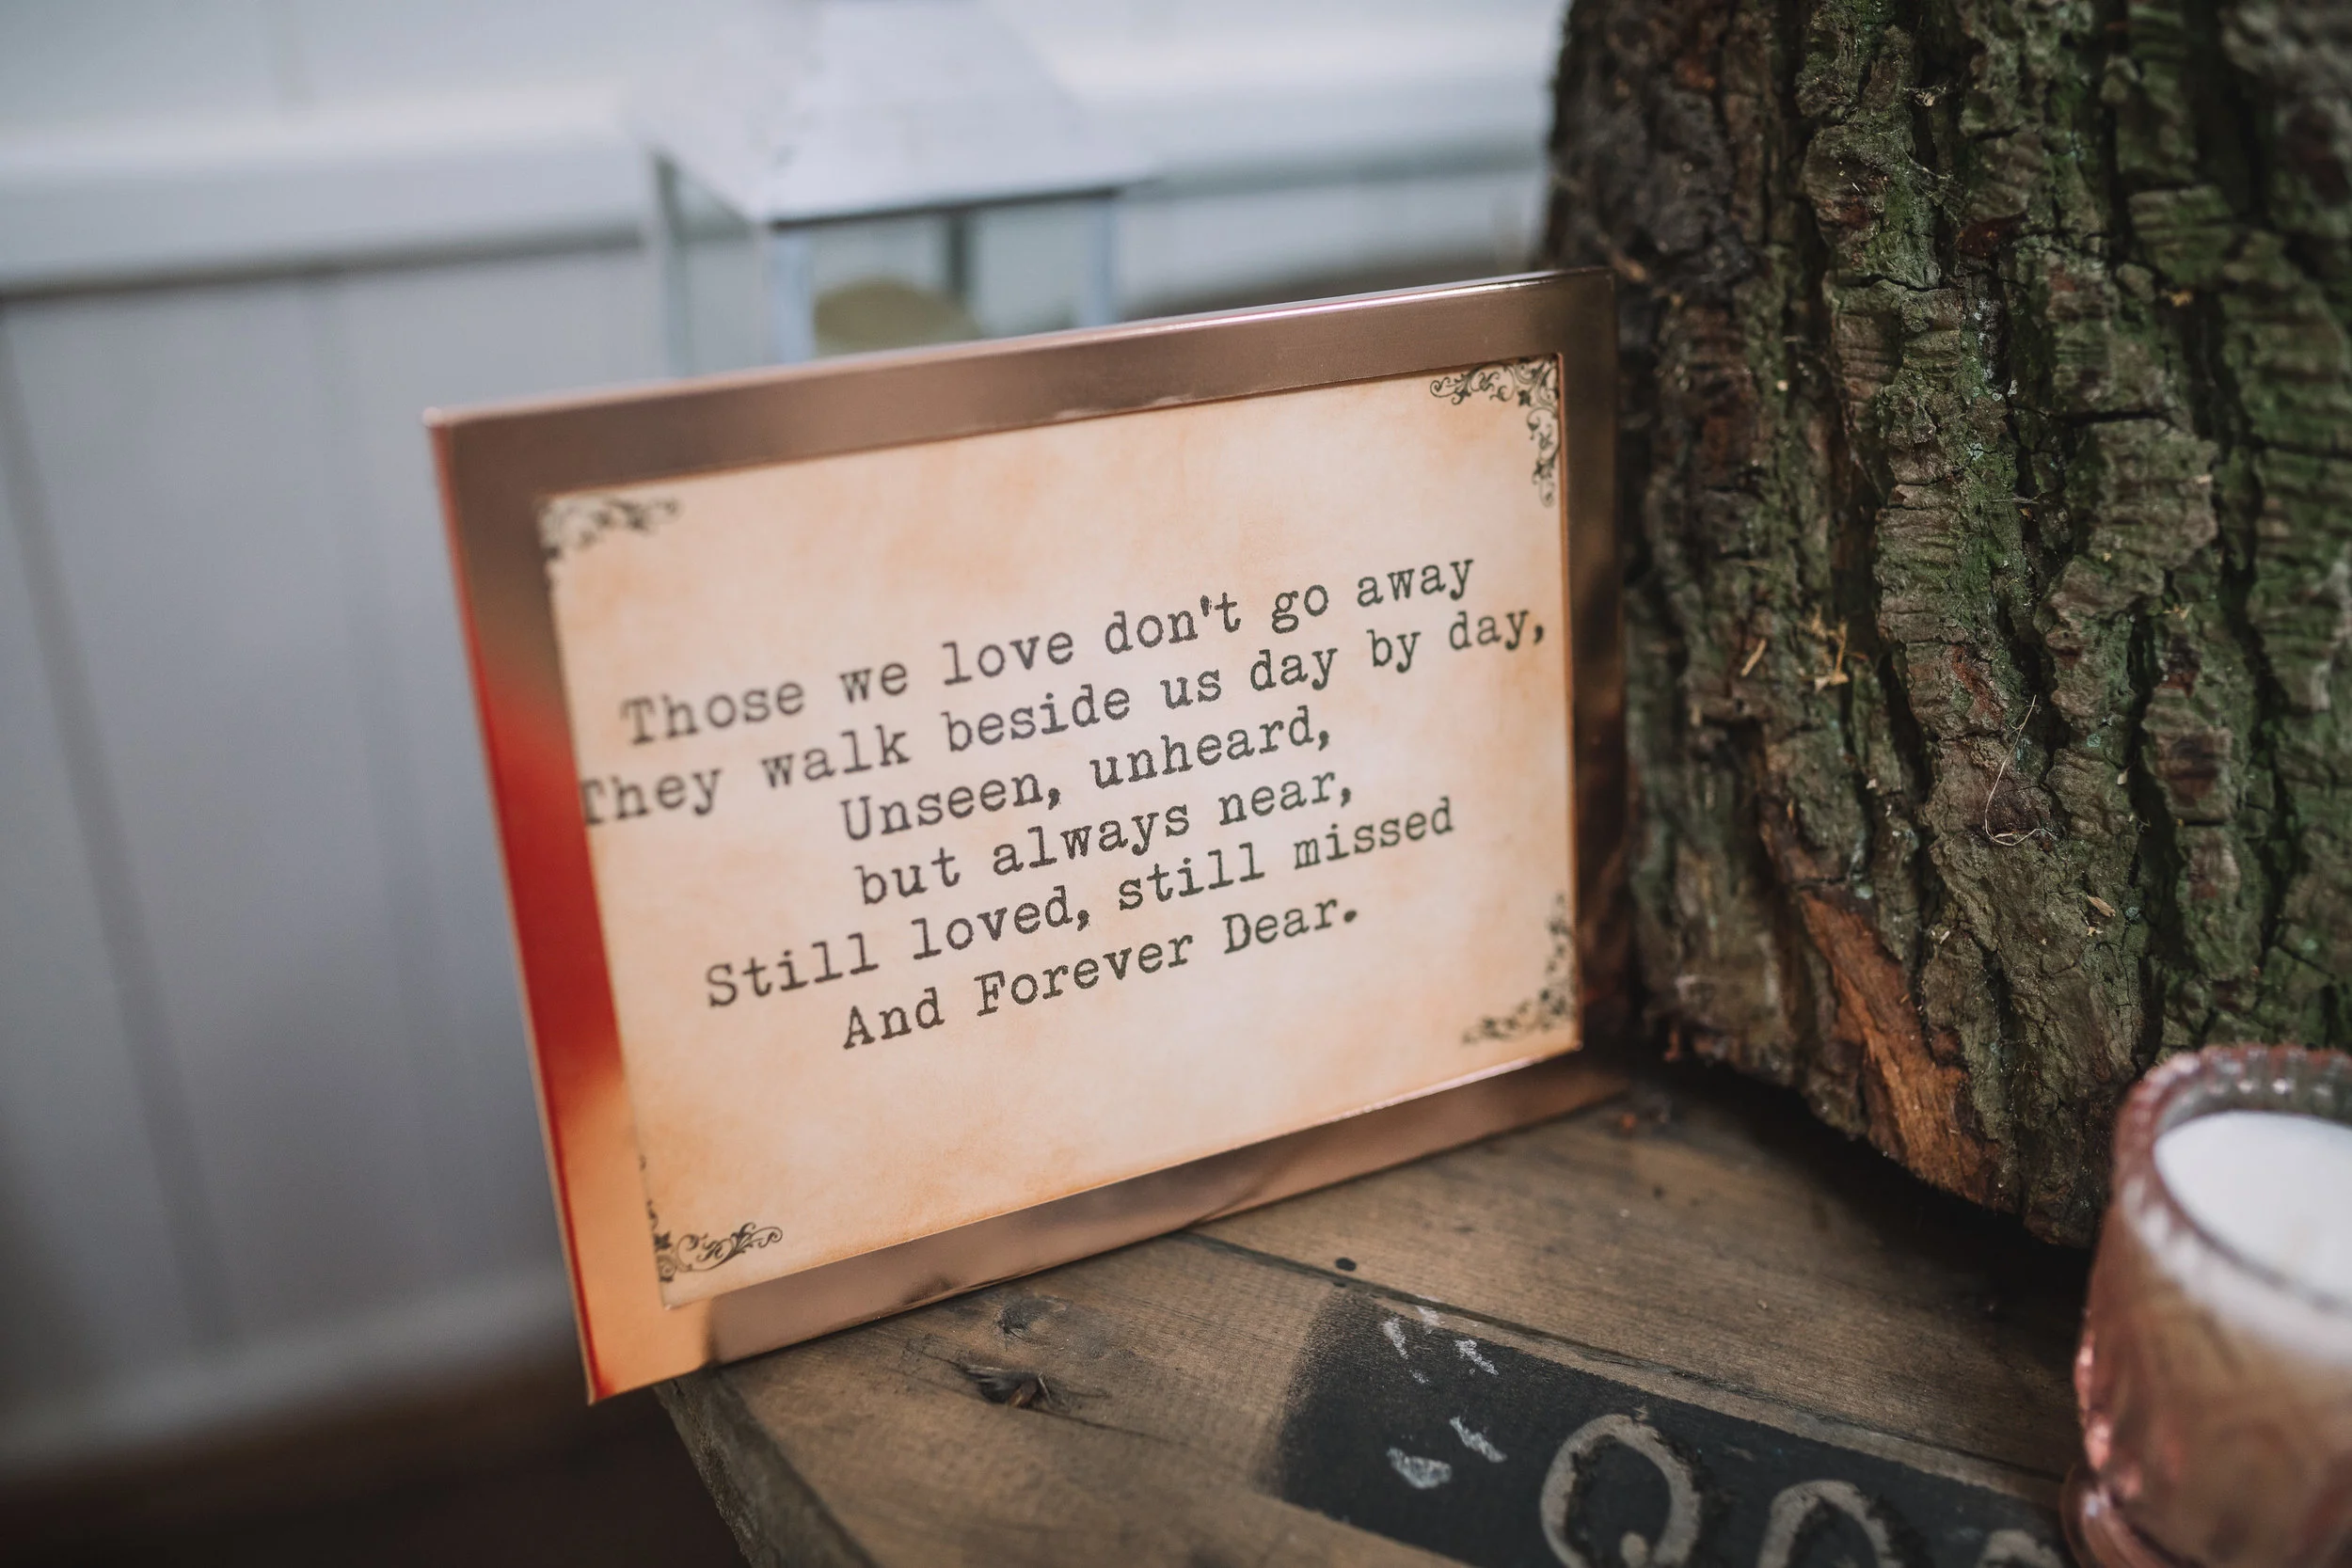 Those we love don't go away
They walk beside us day by day,
Unseen, unheard,
but always near,
Still loved, still missed
And Forever Dear.